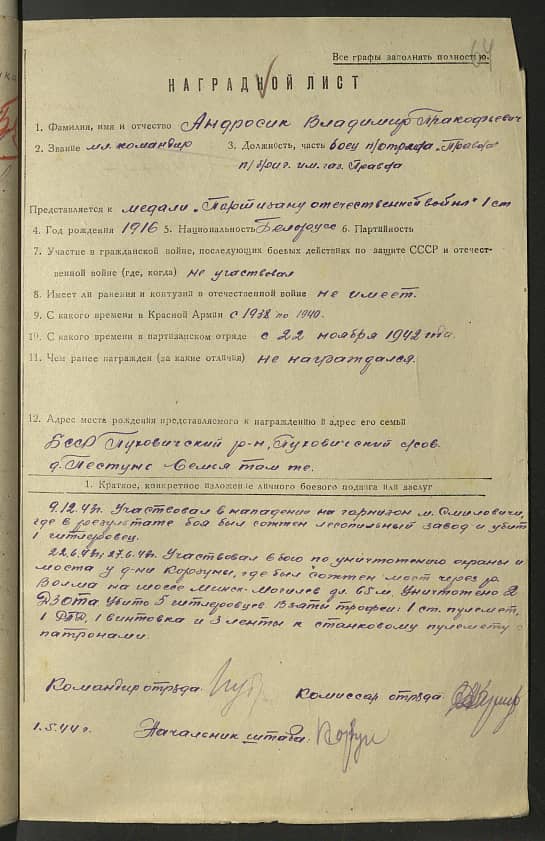 64
Все графы заполнять полностью.
НАГРАДНОЙ ЛИСТ
1. Фамилия, имя и отчество Андросик Владимир Пракофьевич
2. Звание мл. командир 3. Должность, часть боец п/отряда „Правда"
п/бриг. им. газ. Правда
Представляется к медали „Партизану отечественной войны" 1 ст
4. Год рождения 1916 5. Национальность Белорусс 6. Партийность
7. Участие в гражданской войне, последующих боевых действиях по защите СССР и отечест-
венной войне (где, когда) не участвовал
8. Имеет ли ранения и контузии в отечественной войне не имеет.
9. С какого времени в Красной Армии с 1938 по 1940.
10. С какого времени в партизанском отряде с 22 ноября 1942 года.
11. Чем ранее награжден (за какие отличия) не награждался.
12. Адрес места рождения представляемого к награждению и адрес его семьи
БССР Пуховичский р-н, Пуховичский с/сов.
д. Пестуны Семья там же.
1. Краткое, конкретное изложение личного боевого подвига или заслуг
9.12.43г. Участвовал в нападение на гарнизон м. Смиловичи,
где в результате боя был сожжен лесопильный завод и убит
1 гитлеровец.
Участвовал в бою по уничтожению охраны и
моста у д-ни Корзуны, где был сожжен мост через р.
Волма на шоссе Минск-Могилев дл. 65 м. Уничтожено 2
ДЗОТа Убито 5 гитлеровцев. Взяты трофеи: 1 ст. пулемет,
1 винтовка и 3 ленты к станковому пулемету с
патронами.
Командир отряда: Комиссар отряда:
1.5.44г. Началсник штаба: